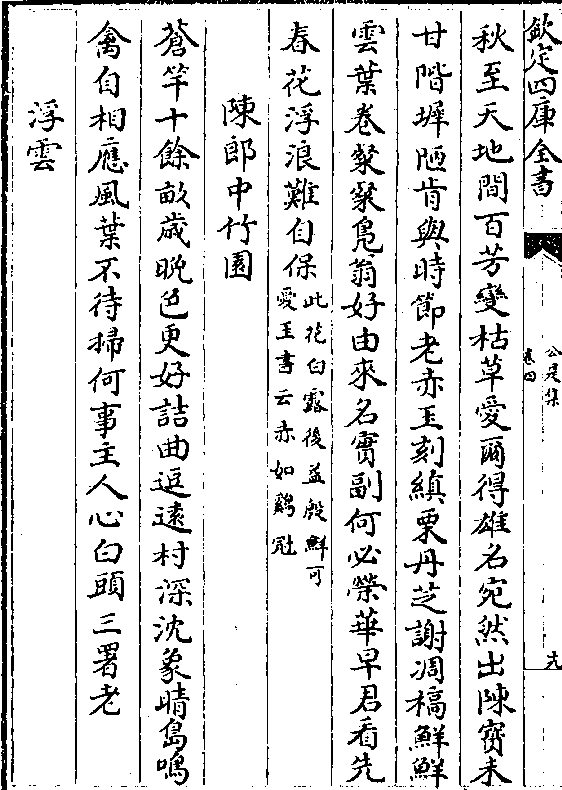 欽定四庫全書
公是集
卷四
九
秋至天地間百芳變枯草愛爾得雄名宛然出陳寳未
甘階墀陋肯與時節老赤玉刻縝栗丹芝謝凋槁鮮鮮
雲葉卷粲粲鳬翁好由來名實副何必榮華早君看先
春花浮浪難自保此花白露後益殷鮮可
愛王書云赤如鷄冠
陳郎中竹園
蒼竿十餘畝歲晩色更好詰曲逗遠村深沈象晴島鳴
禽自相應風葉不待掃何事主人心白頭三署老
浮雲